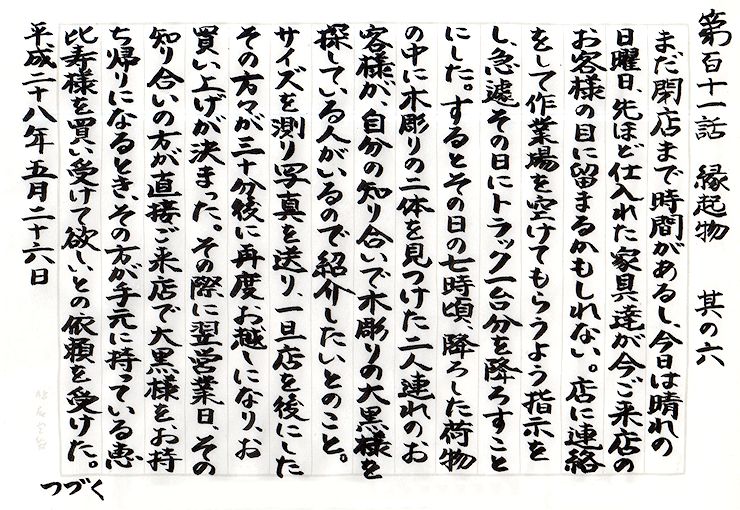 第百十一話　縁起物　其の六
まだ閉店まで時間があるし、今日は晴れの
日曜日、先ほど仕入れた家具達が今ご来店の
お客様の目に留まるかもしれない。店に連絡
をして作業場を空けてもらうよう指示を
し、急遽その日にトラック一台分を降ろすこと
にした。するとその日の七時頃、降ろした荷物
の中に木彫りの二体を見つけた二人連れのお
客様が、自分の知り合いで木彫りの大黒様を
探している人がいるので紹介したいとのこと。
サイズを測り写真を送り、一旦店を後にした
その方々が三十分後に再度お越しになり、お
買い上げが決まった。その際に翌営業日、その
知り合いの方が直接ご来店で大黒様をお持
ち帰りになるとき、その方が手元に持っている恵
比寿様を買い受けて欲しいとの依頼を受けた。
平成二十八年五月二十六日
つづく